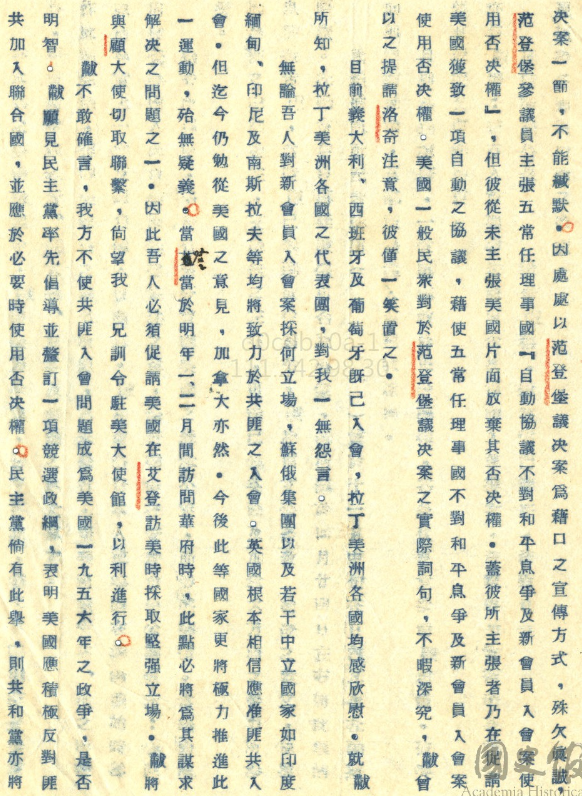 決案一節，不能緘默。因處處以范登堡議決案爲藉口之宣傳方式，殊欠眞誠，
范登堡參議員主張五常任理事國『自動協議不對和平息爭及新會員入會案使
用否决權』，但彼從未主張美國片面放棄其否决權。蓋彼所主張者乃在促請
美國獲致一項自動之協議，藉使五常任理事國不對和平息爭及新會員入會案
使用否决權。美國一般民衆對於范登堡議決案之實際詞句，不暇深究，𨢄曾
以之提請洛奇注意，彼僅一笑置之。
目前義大利、西班牙及葡萄牙旣已入會，拉丁美洲各國均感欣慰。就𨢄
所知，拉丁美洲各國之代表團，對我一無怨言。
無論吾人對新會員入會案採何立場，蘇俄集團以及若干中立國家如印度
緬甸、印尼及南斯拉夫等均將致力於共匪之入會。英國根本相信應准匪共入
會。但迄今仍勉從美國之意見，加拿大亦然。今後此等國家更將極力推進此
一運動，殆無疑義。當艾登當於明年一、二月間訪問華府時，此點必將爲其謀求
解决之問題之一。因此吾人必須促請美國在艾登訪美時採取堅强立場。𨢄將
與顧大使切取聯繫，尙望我　兄訓令駐美大使館，以利進行。
𨢄不敢確言，我方不使共匪入會問題成爲美國一九五六年之政爭，是否
明智。𨢄願見民主黨率先倡導並釐訂一項競選政綱，表明美國應積極反對匪
共加入聯合國，並應於必要時使用否决權。民主黨倘有此舉，則共和黨亦將
國史館
Academia Historica